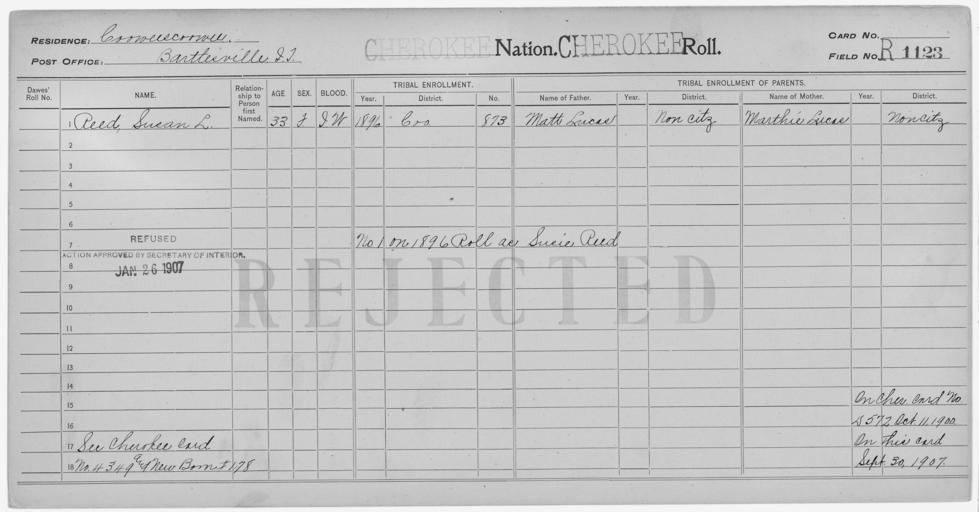 RESIDENCE: Coowescoowee.
POST OFFICE: Bartlesville I.T.
CHEROKEE Nation. CHEROKEE Roll.
CARD NO.
FIELD NO. R 1123
Dawes' Roll No.
NAME.
Relationship to Person first Named.
AGE
SEX.
BLOOD.
TRIBAL ENROLLMENT.
Year. District. No.
TRIBAL ENROLLMENT OF PARENTS.
Name of Father. Year. District. Name of Mother. Year. District.
1 Reed, Susan L. 33 F I W 1896 Coo 873 Matt Lucas Non citz Marthie Lucas Noncitz
2
3
4
5
6
7 No 1 on 1896 Roll as Susie Reed
REFUSED
ACTION APPROVED BY SECRETARY OF INTERIOR.
8 JAN 26 1907
REJECTED
9
10
11
12
13
14
15 On Cher. Card No.
16 D 572 Oct. 11, 1900.
17 See Cherokee Card On this card
18 No. 4349 New Born # 178 Sept 30, 1907.